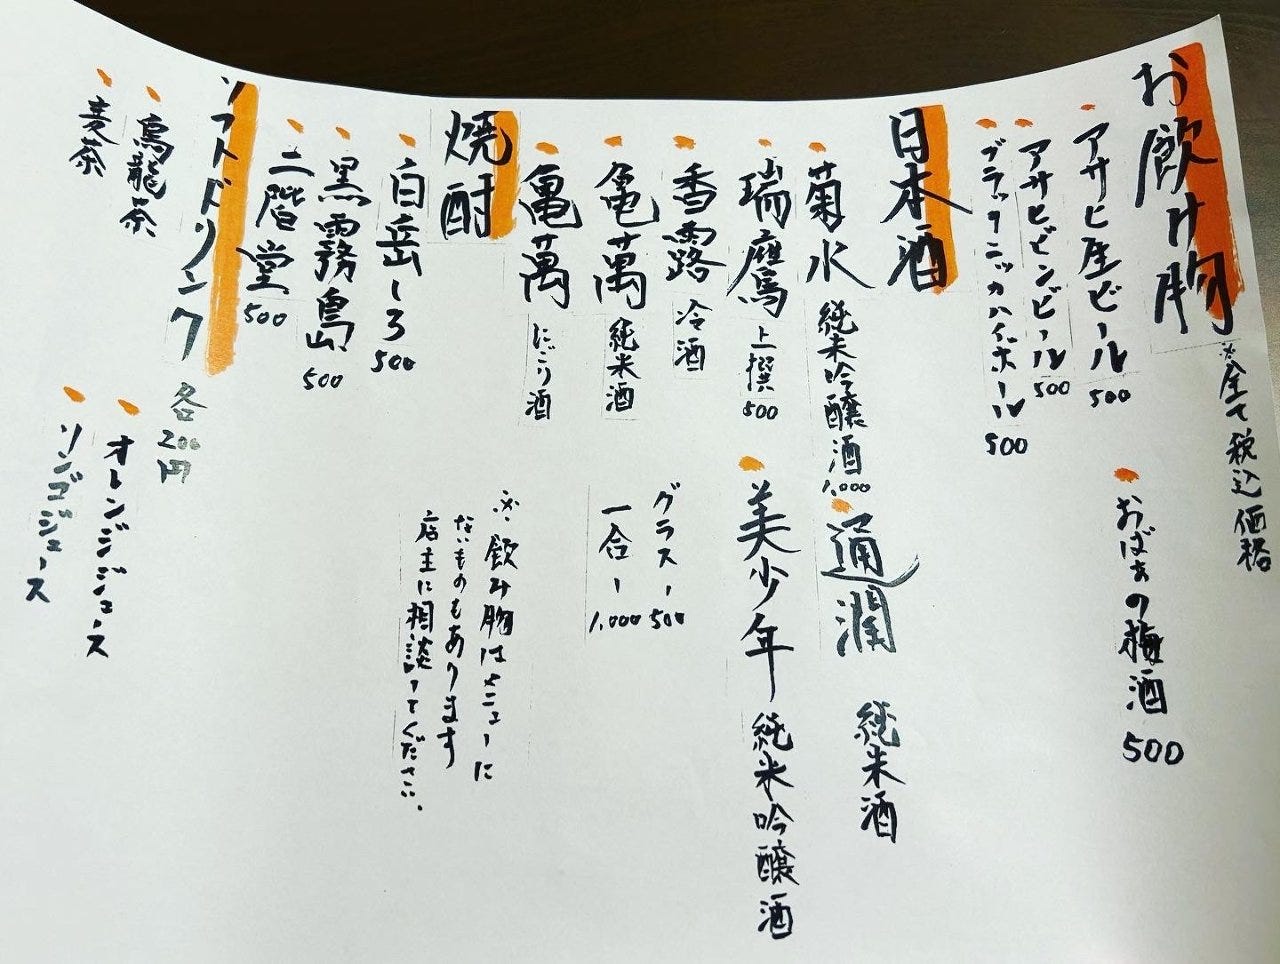 お飲み物
※全て税込価格
アサヒ生ビール 500
アサヒビンビール 500
ブラックニッカハイボール 500
おばぁの梅酒 500
日本酒
菊水 純米吟醸酒 1,000
瑞鷹 上撰 500
香露 冷酒
亀萬 純米酒
亀萬 にごり酒
通潤 純米酒
美少年 純米吟醸酒
グラス、500
一合、1,000
焼酎
白岳しろ 500
黒霧島 500
二階堂 500
※飲み物はメニューに
ないものもあります
店主に相談してください。
ソフトドリンク 各200円
烏龍茶
麦茶
オレンジジュース
リンゴジュース